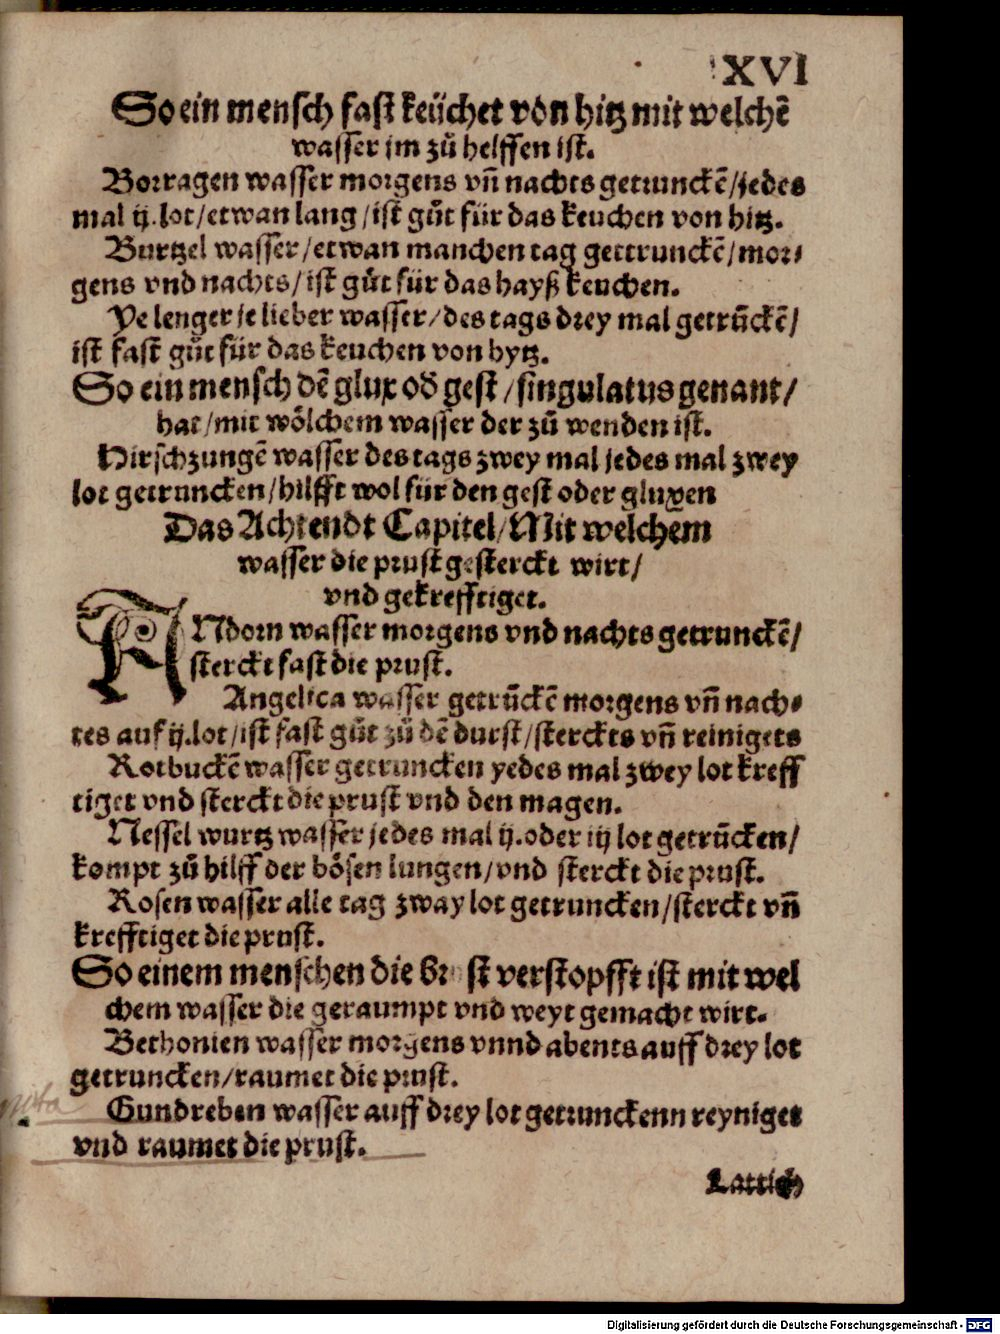 XVI
So ein mensch fast keüchet von hitz mit welchē
wasser jm zů helffen ist.
Borragen wasser morgens vñ nachts getrunckē/jedes
mal ij. lot/etwan lang/ist gůt für das keuchen von hitz.
Burtzel wasser/etwan manchen tag gettrunckē/mor⸗
gens vnd nachts/ist gůt für das hayß keuchen.
Ye lenger je lieber wasser/des tags drey mal getrūckē/
ist fast gůt für das keuchen von hytz.
So ein mensch dē glux od gest/singulatus genant/
hat/mit wölchem wasser der zů wenden ist.
Hirschzungē wasser des tags zwey mal jedes mal zwey
lot getruncken/hilfft wol für den gest oder gluxen
Das Achtendt Capitel/Mit welchem
wasser die prust gesterckt wirt/
vnd gekrefftiget.
ANdorn wasser morgens vnd nachts getrunckē/
sterckt fast die prust.
Angelica wasser getrūckē morgens vñ nach⸗
tes auf ij.lot/ist fast gůt zů dē durst/sterckts vñ reinigets
Rotbuckē wasser getruncken yedes mal zwey lot kreff
tiget vnd sterckt die prust vnd den magen.
Nessel wurtz wasser jedes mal ij. oder iij lot getrūcken/
kompt zů hilff der bösen lungen/vnd sterckt die prust.
Rosen wasser alle tag zway lot getruncken/sterckt vñ
krefftiget die prust.
So einem menschen die br st verstopfft ist mit wel
chem wasser die geraumpt vnd weyt gemacht wirt.
Bethonien wasser morgens vnnd abents auff drey lot
getruncken/raumet die prust.
nota
Gundreben wasser auff drey lot getrunckenn reyniget
vnd raumet die prust.
Lattich
Digitalisierung gefördert durch die Deutsche Forschungsgemeinschaft - DFG